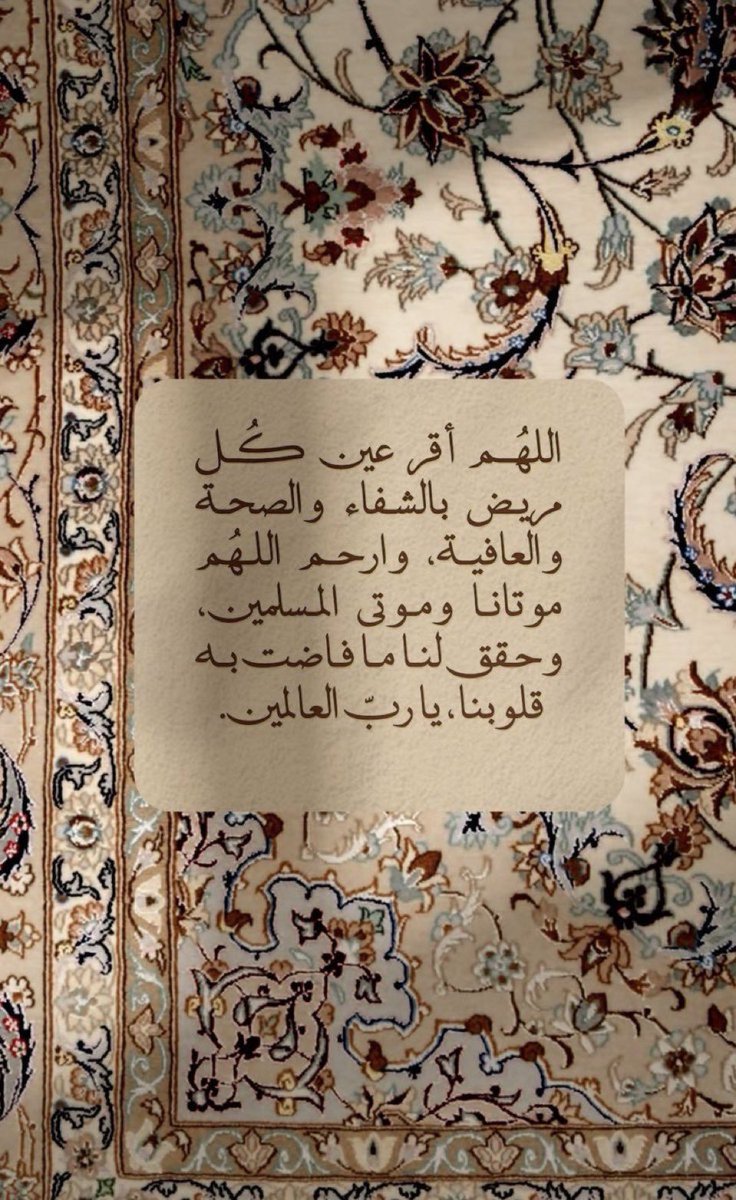 اللهُم أقر عين كُل
مريض بالشفاء والصحة
والعافية، وارحم اللهُم
موتانا وموتى المسلمين،
وحقق لنا ما فاضت به
قلوبنا، يا ربّ العالمين.